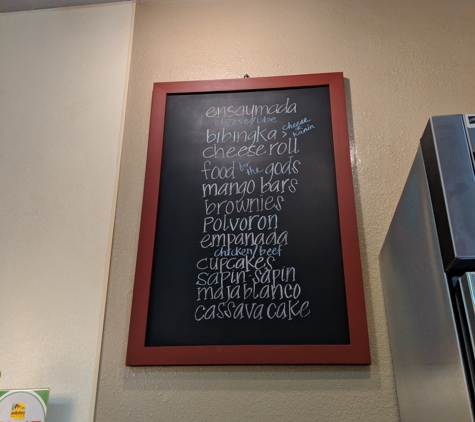 ensaymada
cheese/ube
bibingka > cheese
kanin
cheese roll
food by the gods
mango bars
brownies
polvoron
empanada
chicken/beef
cupcakes
sapin-sapin
maja blanco
cassava cake